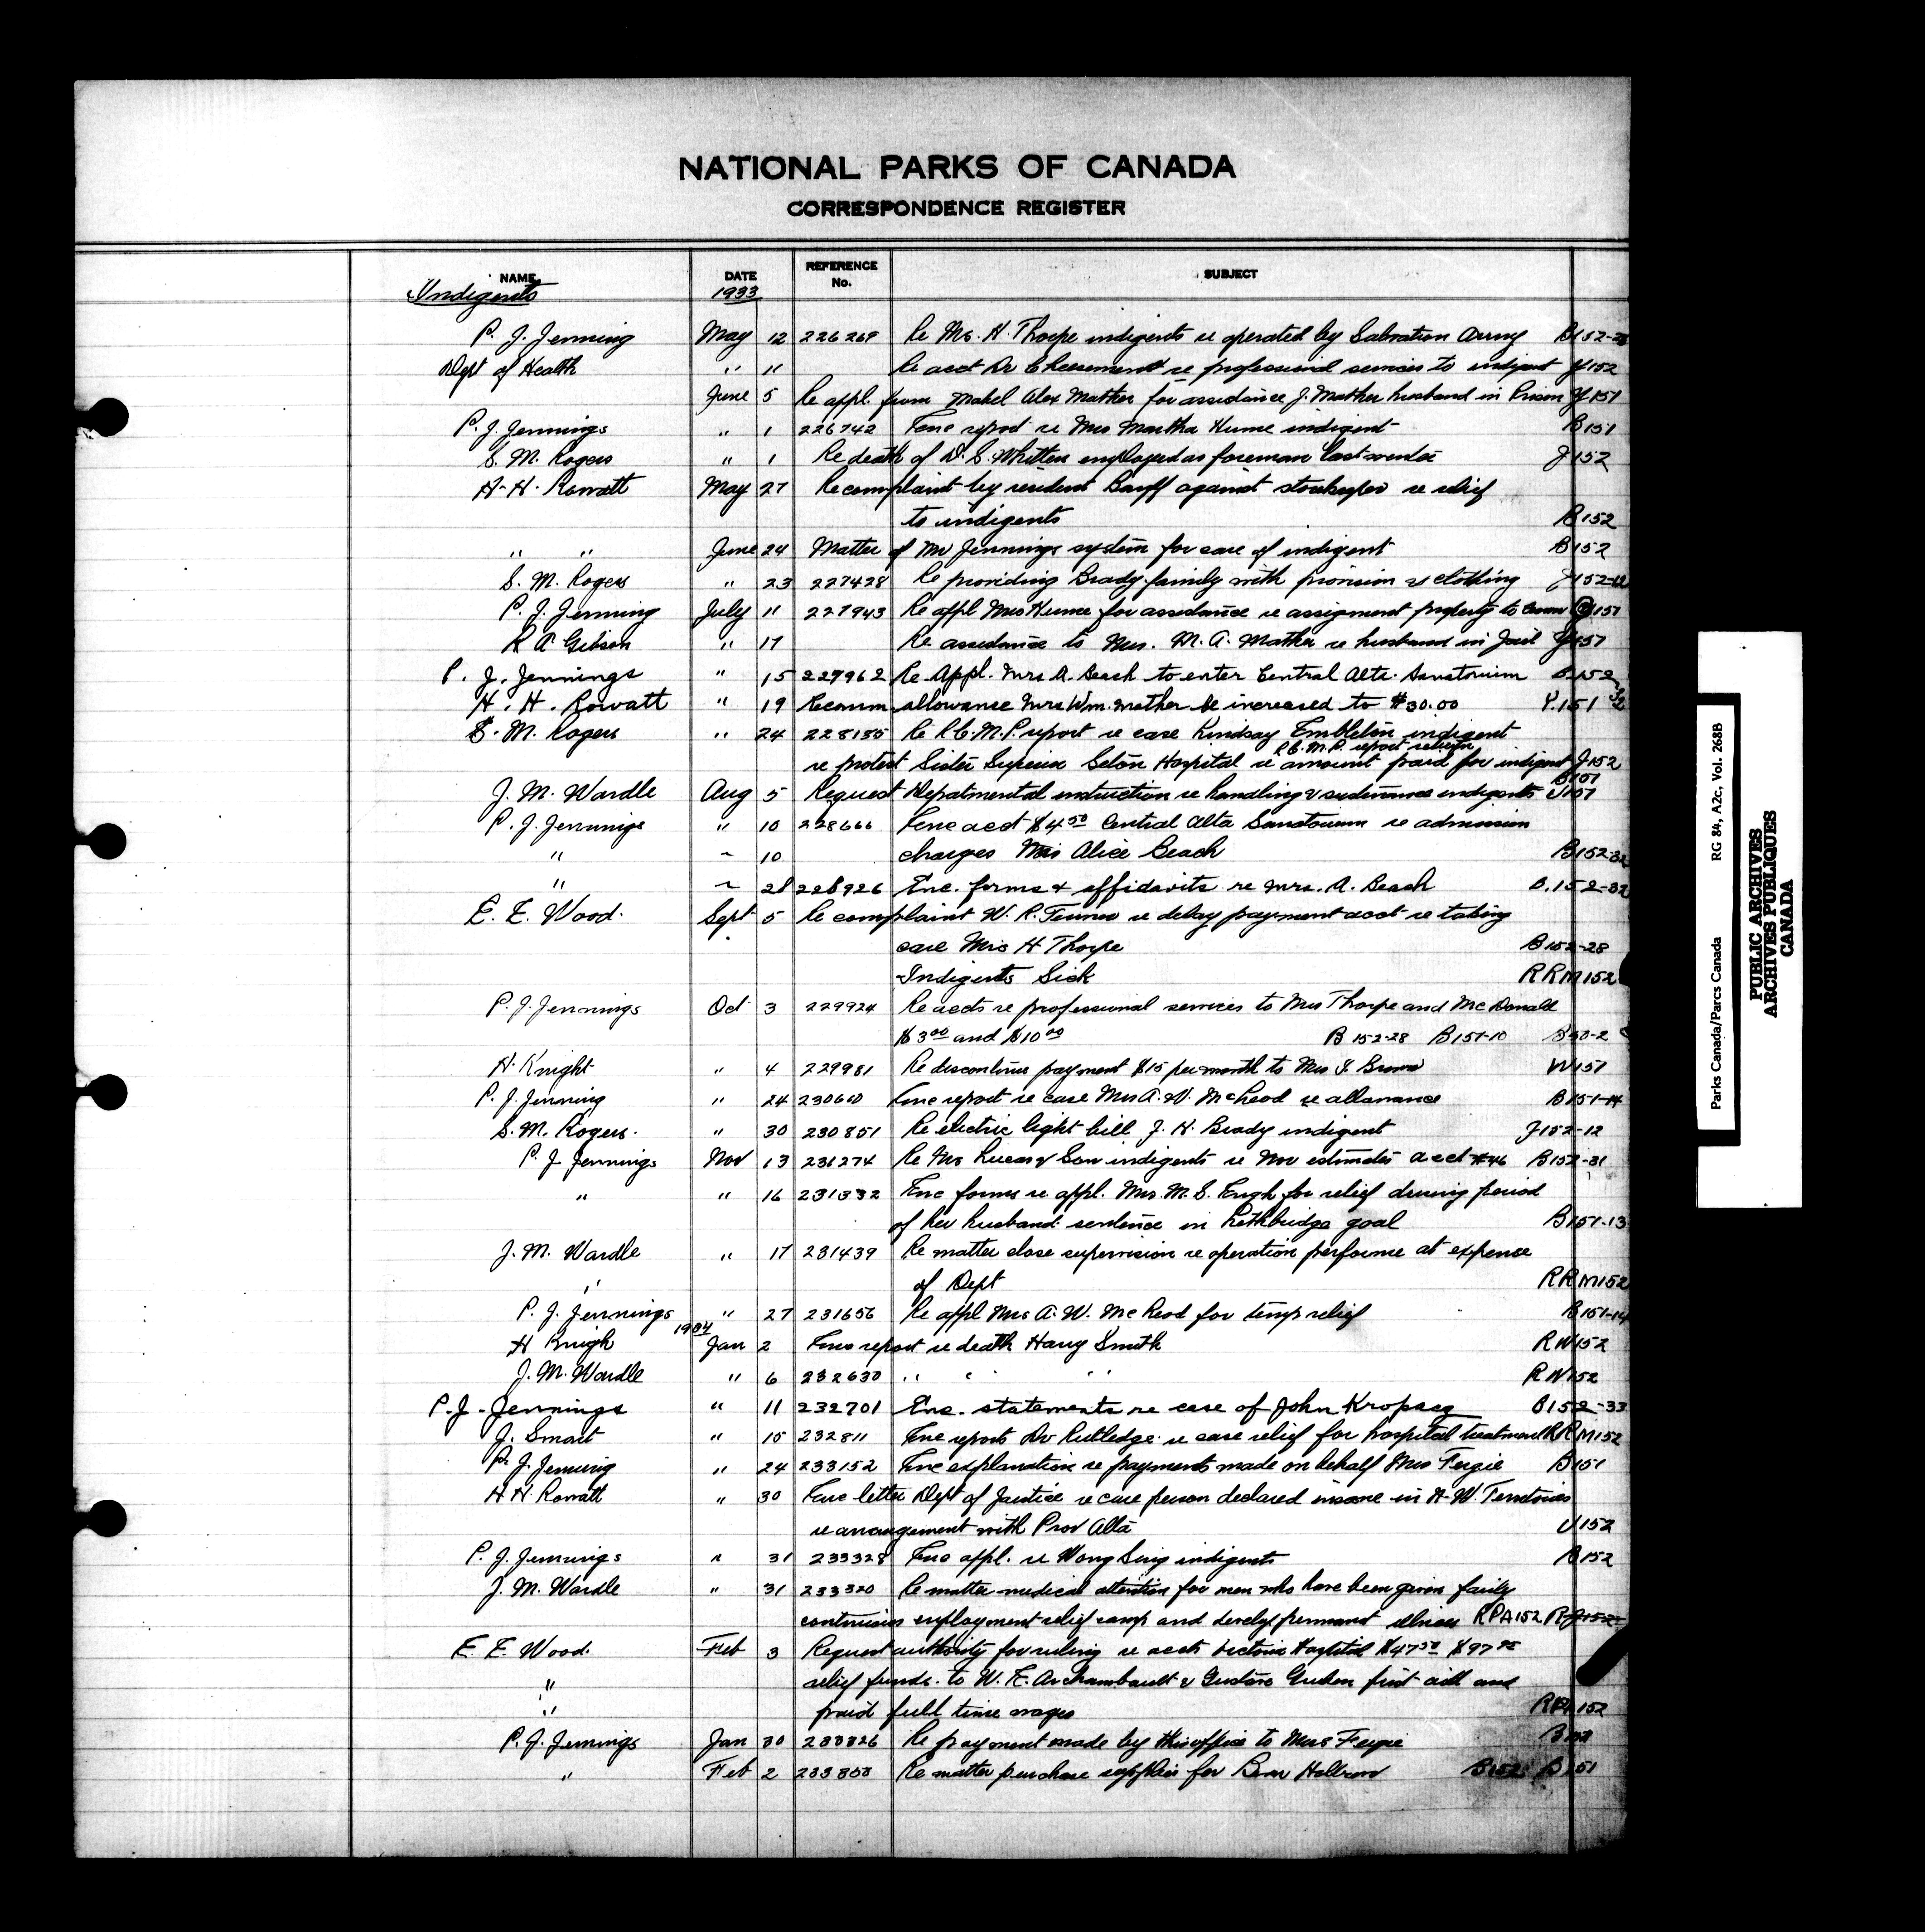 NATIONAL PARKS OF CANADA
CORRESPONDENCE REGISTER
NAME DATE REFERENCE No. SUBJECT
Indigents 1933
P. J. Jenning May 12 226269 Re Mrs. H. Thorpe indigents re operated by Salvation Army B152-28
Dept of Health " 11 Re acct Dr re professional services to indigent Y152
June 5 Re appl. from Mabel Alex Mather for assistance J. Mather husband in Prison Y151
P. J. Jennings " 1 226742 Enc report re Mrs Martha Hume indigent B151
S. M. Rogers " 1 Re death of D. S. Whitten employed as foreman last winter J152
H. H. Rowatt May 27 Re complaint by resident Banff against storekeeper re relief
to indigents B152
" " June 24 Matter of Mr Jennings system for care of indigent B152
S. M. Rogers " 23 227428 Re providing Brady family with provision & clothing J152-12
P. J. Jenning July 11 227943 Re appl Mrs Hume for assistance re assignment property to B151
R A Gibson " 17 Re assistance to Mrs. M. A. Mather re husband in Jail Y151
P. J. Jennings " 15 227962 Re Appl. Mrs A. Beach to enter Central Alta. Sanatorium B.152 32
H. H. Rowatt " 19 Recomm allowance Mrs Wm. Mather be increased to $30.00 Y.151
S. M. Rogers " 24 228185 Re R.C.M.P. report re case Lindsay Embleton indigent
R.C.M.P. report
re protest Sister Superior Seton Hospital re amount paid for indigent J152
B151
J. M. Wardle Aug 5 Request Departmental instruction re handling & sustenance indigents J151
P. J. Jennings " 10 228666 Enc acct $4.50 Central Alta Sanatorium re admission
" " 10 charges Mrs Alice Beach B152-32
" " 28 228926 Enc. forms & affidavits re Mrs. A. Beach B.152-32
E. E. Wood. Sept 5 Re complaint W. R. re delay payment acct re taking
care Mrs H Thorpe B152-28
Indigents Sick RRM152
P. J. Jennings Oct 3 229924 Re accts re professional services to Mrs Thorpe and McDonald
$3.00 and $10.00 B152-28 B151-10 B30-2
H. Knight " 4 229981 Re discontinue payment $15 per month to Mrs Brown W151
P. J. Jenning " 24 230610 Enc report re case Mrs A. W. McLeod re allowance B151-14
S. M. Rogers. " 30 230851 Re electric light bill J. H. Brady indigent J152-12
P. J. Jennings Nov 13 231274 Re Mrs Lucas & Son indigents re Nov estimates acct #46 B152-31
" " 16 231332 Enc forms re appl. Mrs. M. S. for relief during period
of her husband sentence in Lethbridge goal B151-13
J. M. Wardle " 17 231439 Re matter close supervision re operation performe at expense
" of Dept RRM152
P. J. Jennings " 27 231656 Re appl Mrs A. W. McLeod for temp relief B151-14
1934
H Knigh Jan 2 Enc report re death Harry Smith RW152
J. M. Wardle " 6 232630 " " " RW152
P. J. Jennings " 11 232701 Enc. statements re case of John B152-33
J. Smart " 15 232811 Enc reports Dr Rutledge re case relief for hospital treatment RRM152
P. J. Jenning " 24 233152 Enc explanation re payments made on behalf Mrs Fergie B151
H H. Rowatt " 30 Enc letter Dept of Justice re case person declared insane in N.W. Territories
re arrangement with Prov Alta U152
P. J. Jennings " 31 233328 Enc appl. re Wong Sing indigents B152
J. M. Wardle " 31 233320 Re matter medical attention for men who have been given fairly
continuous employment relief camp and develop permanent illness RPA152 RJ152
E. E. Wood. Feb 3 Request authority for ruling re accts Victoria Hospital $47.50
" relief funds. to W. E. Archambault & Gustave first aid and
" paid full time wages RPA152
P. J. Jennings Jan 30 Re payment made by this office to Mrs Fergie
" Feb 2 Re matter purchase supplies for B152 B151
Parks Canada/Parcs Canada RG 84, A2c, Vol. 268B
PUBLIC ARCHIVES
ARCHIVES PUBLIQUES
CANADA